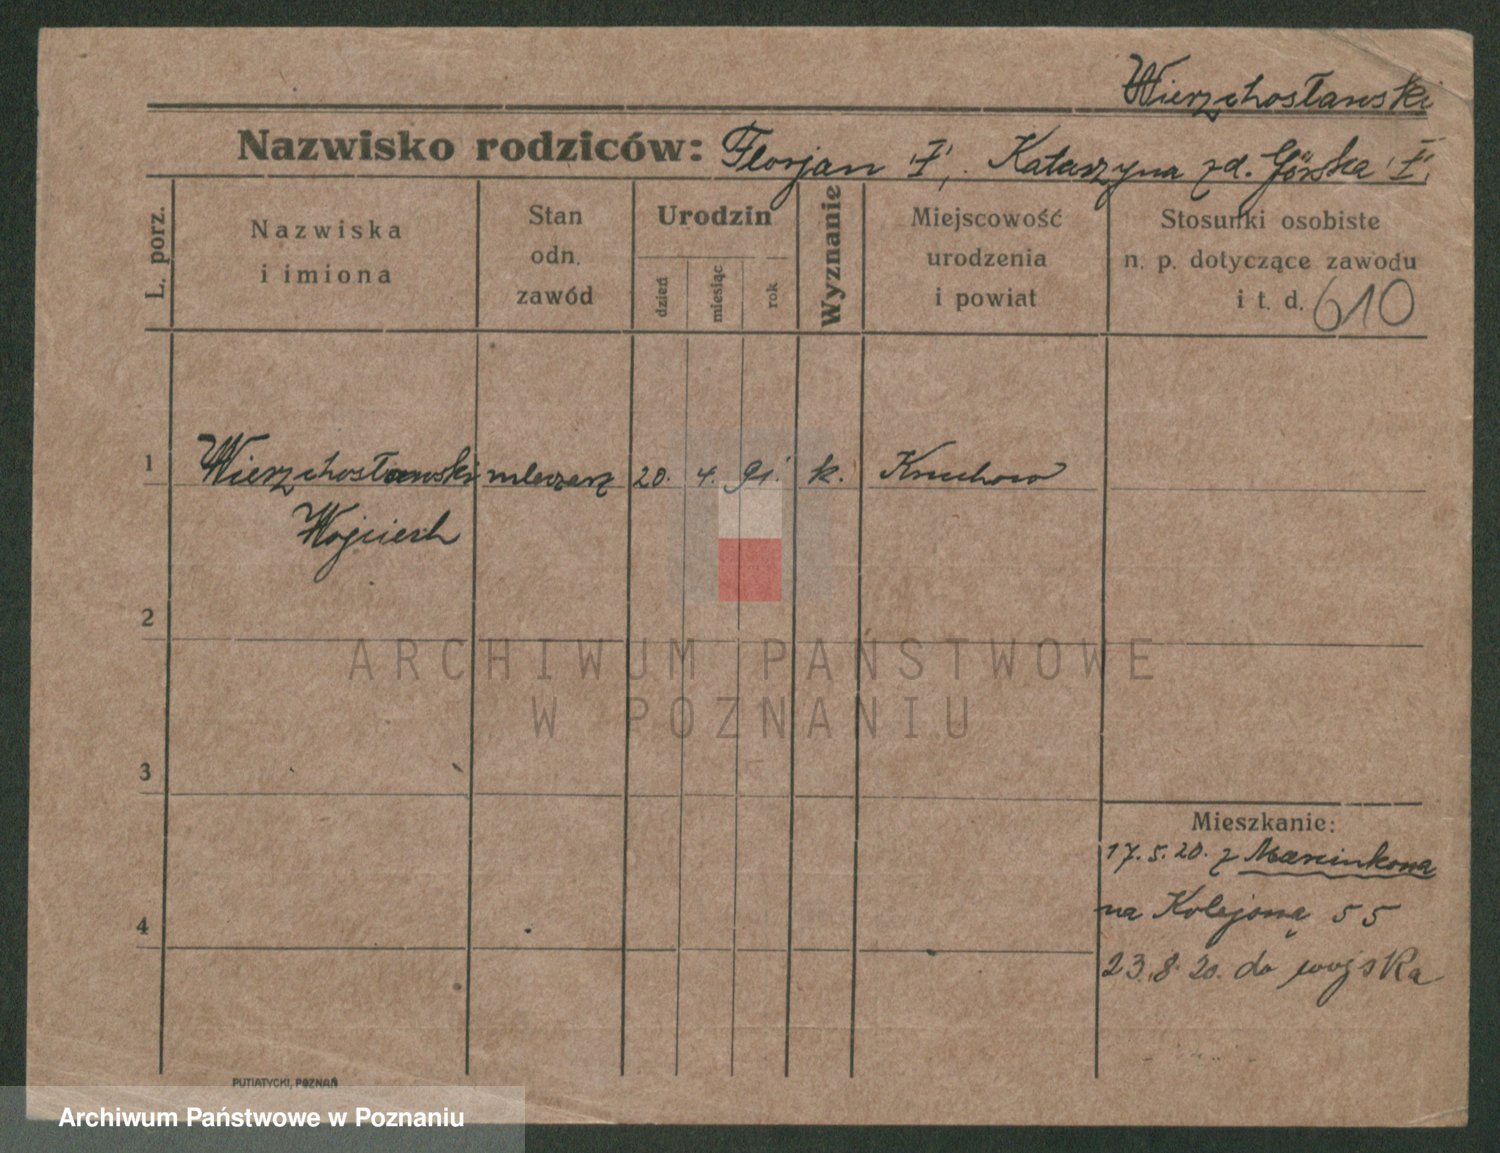 Wierzchosławski
Nazwisko rodziców: Florjan 'I', Katarzyna zd. Górska 'I'
L. porz.
Nazwiska
i imiona
Stan
odn.
zawód
Urodzin
dzień
miesiąc
rok
Wyznanie
Miejscowość
urodzenia
i powiat
Stosunki osobiste
n. p. dotyczące zawodu
i t. d. 610
1 Wierzchosławski mleczarz 20. 4. 91. k. Kruchowo
Wojciech
2
3
Mieszkanie:
17.5.20. z Marcinkowa
na Kolejową 55
4
23.8.20. do wojska
PUTIATYCKI, POZNAŃ
ARCHIWUM PAŃSTWOWE
W POZNANIU
Archiwum Państwowe w Poznaniu